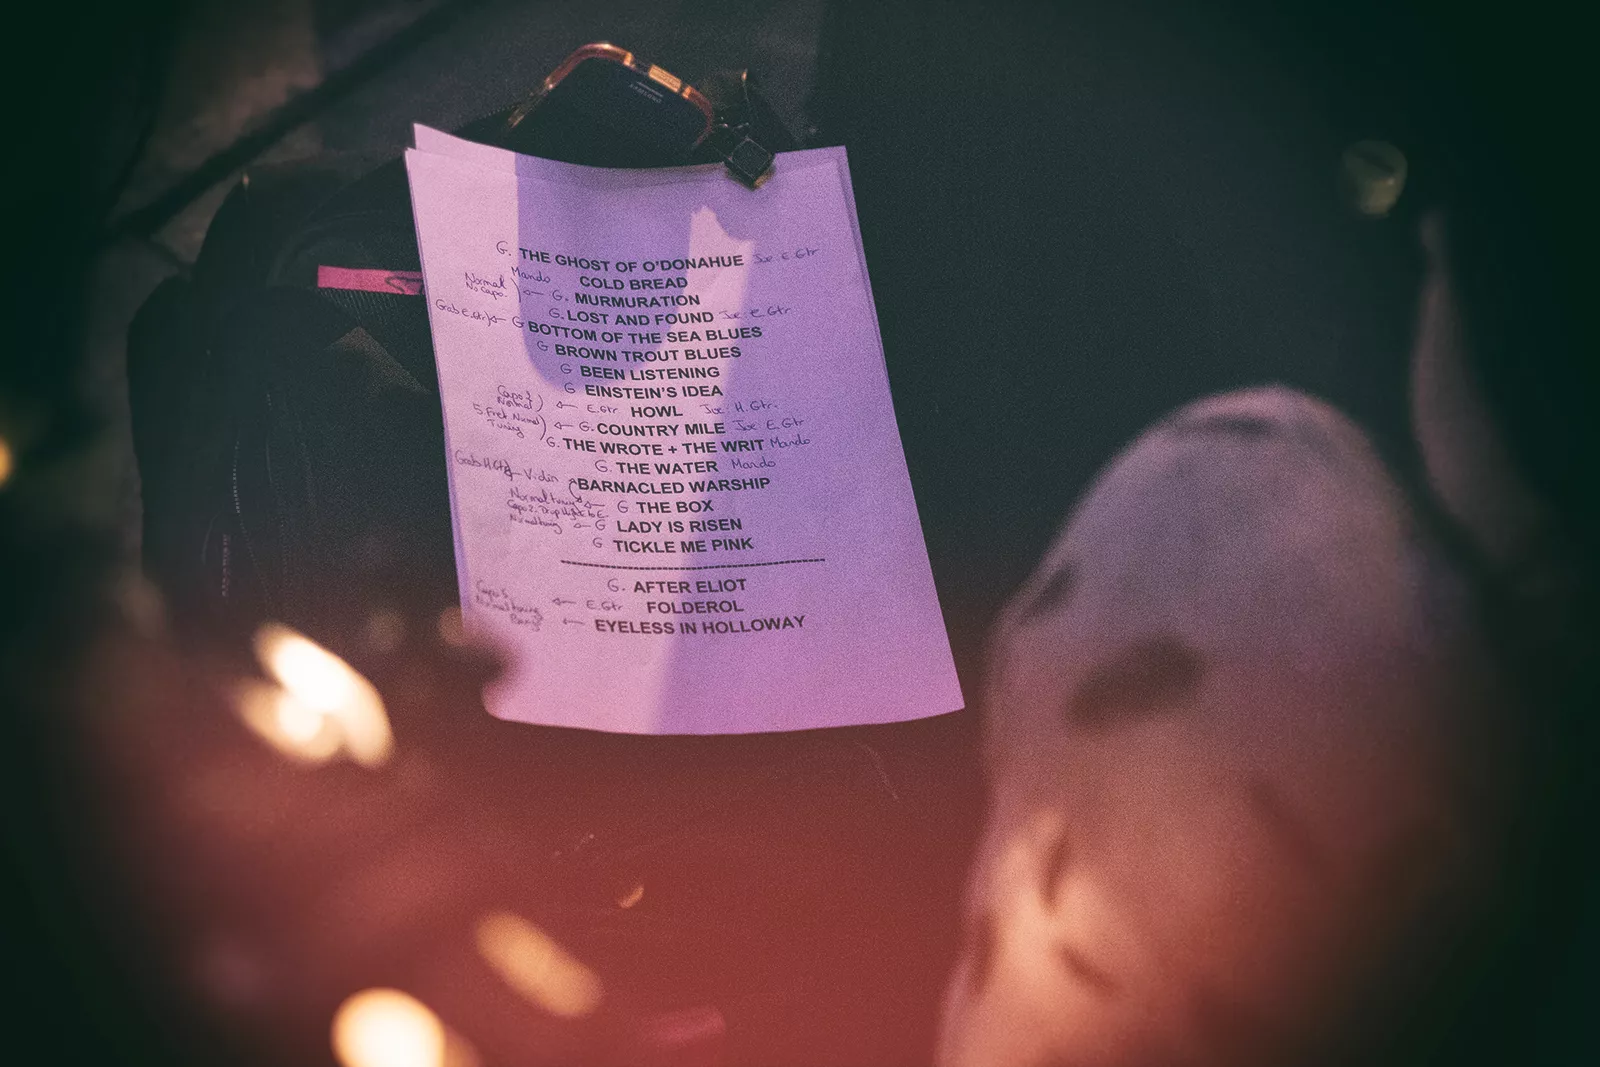 G. THE GHOST OF O'DONAHUE Joe E. Gtr
Mando COLD BREAD
Normal No Capo. ← G. MURMURATION
G. LOST AND FOUND Joe E Gtr
Grab E.Gtr ← G BOTTOM OF THE SEA BLUES
G BROWN TROUT BLUES
G BEEN LISTENING
G EINSTEIN'S IDEA
Capo 2 Normal ← E.Gtr HOWL Joe: H.Gtr.
5 Fret Normal Tuning ← G. COUNTRY MILE Joe E.Gtr
G. THE WROTE + THE WRIT Mando
G. THE WATER Mando
Grab H.Gtr ← Violin BARNACLED WARSHIP
Normal tuning Capo 2. Drop to E ← G THE BOX
Normal tuning ← G LADY IS RISEN
G TICKLE ME PINK
G. AFTER ELIOT
Capo 5 Normal tuning ← E.Gtr FOLDEROL
← EYELESS IN HOLLOWAY